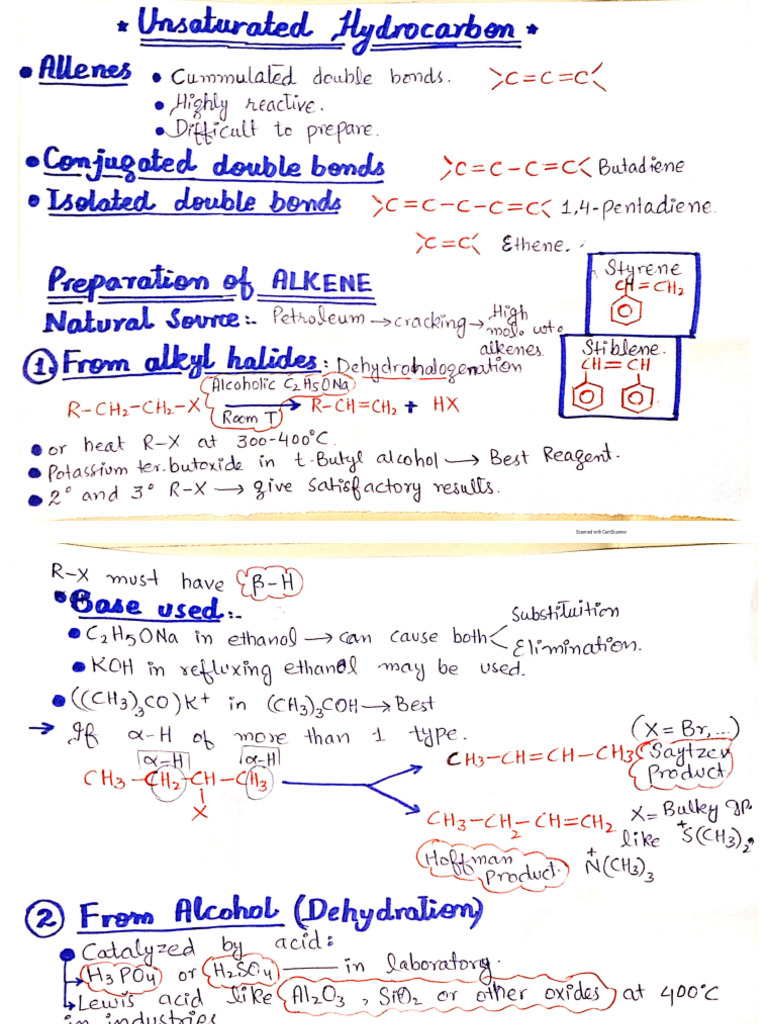 * Unsaturated Hydrocarbon *
• Allenes • Cummulated double bonds. >C=C=C<
• Highly reactive.
• Difficult to prepare.
• Conjugated double bonds >C=C-C=C< Butadiene
• Isolated double bonds >C=C-C-C=C< 1,4-pentadiene.
>C=C< Ethene.
Preparation of ALKENE
Styrene
CH=CH2
Natural Source:- Petroleum → cracking → High mole. wt. alkenes.
Stiblene.
CH=CH
1. From alkyl halides: Dehydrohalogenation
Alcoholic C2H5ONa
R-CH2-CH2-X → R-CH=CH2 + HX
Room T
• or heat R-X at 300-400°C.
• Potassium ter.butoxide in t.Butyl alcohol → Best Reagent.
• 2° and 3° R-X → give satisfactory results.
Scanned with CamScanner
R-X must have β-H
• Base used:-
• C2H5ONa in ethanol → can cause both < Substituition
Elimination.
• KOH in refluxing ethanol may be used.
• ((CH3)3CO)K+ in (CH3)3COH → Best
→ If α-H of more than 1 type.
(X=Br,...)
α-H α-H
CH3-CH=CH-CH3 Saytzev Product
CH3-CH2-CH-CH3
X
CH3-CH2-CH=CH2 X= Bulky gp. like +S(CH3)2,
+N(CH3)3
Hoffman Product.
2 From Alcohol (Dehydration)
• Catalyzed by acid:
→ H3PO4 or H2SO4 — in laboratory.
→ Lewis acid like Al2O3, SiO2 or other oxides at 400°C
in industries